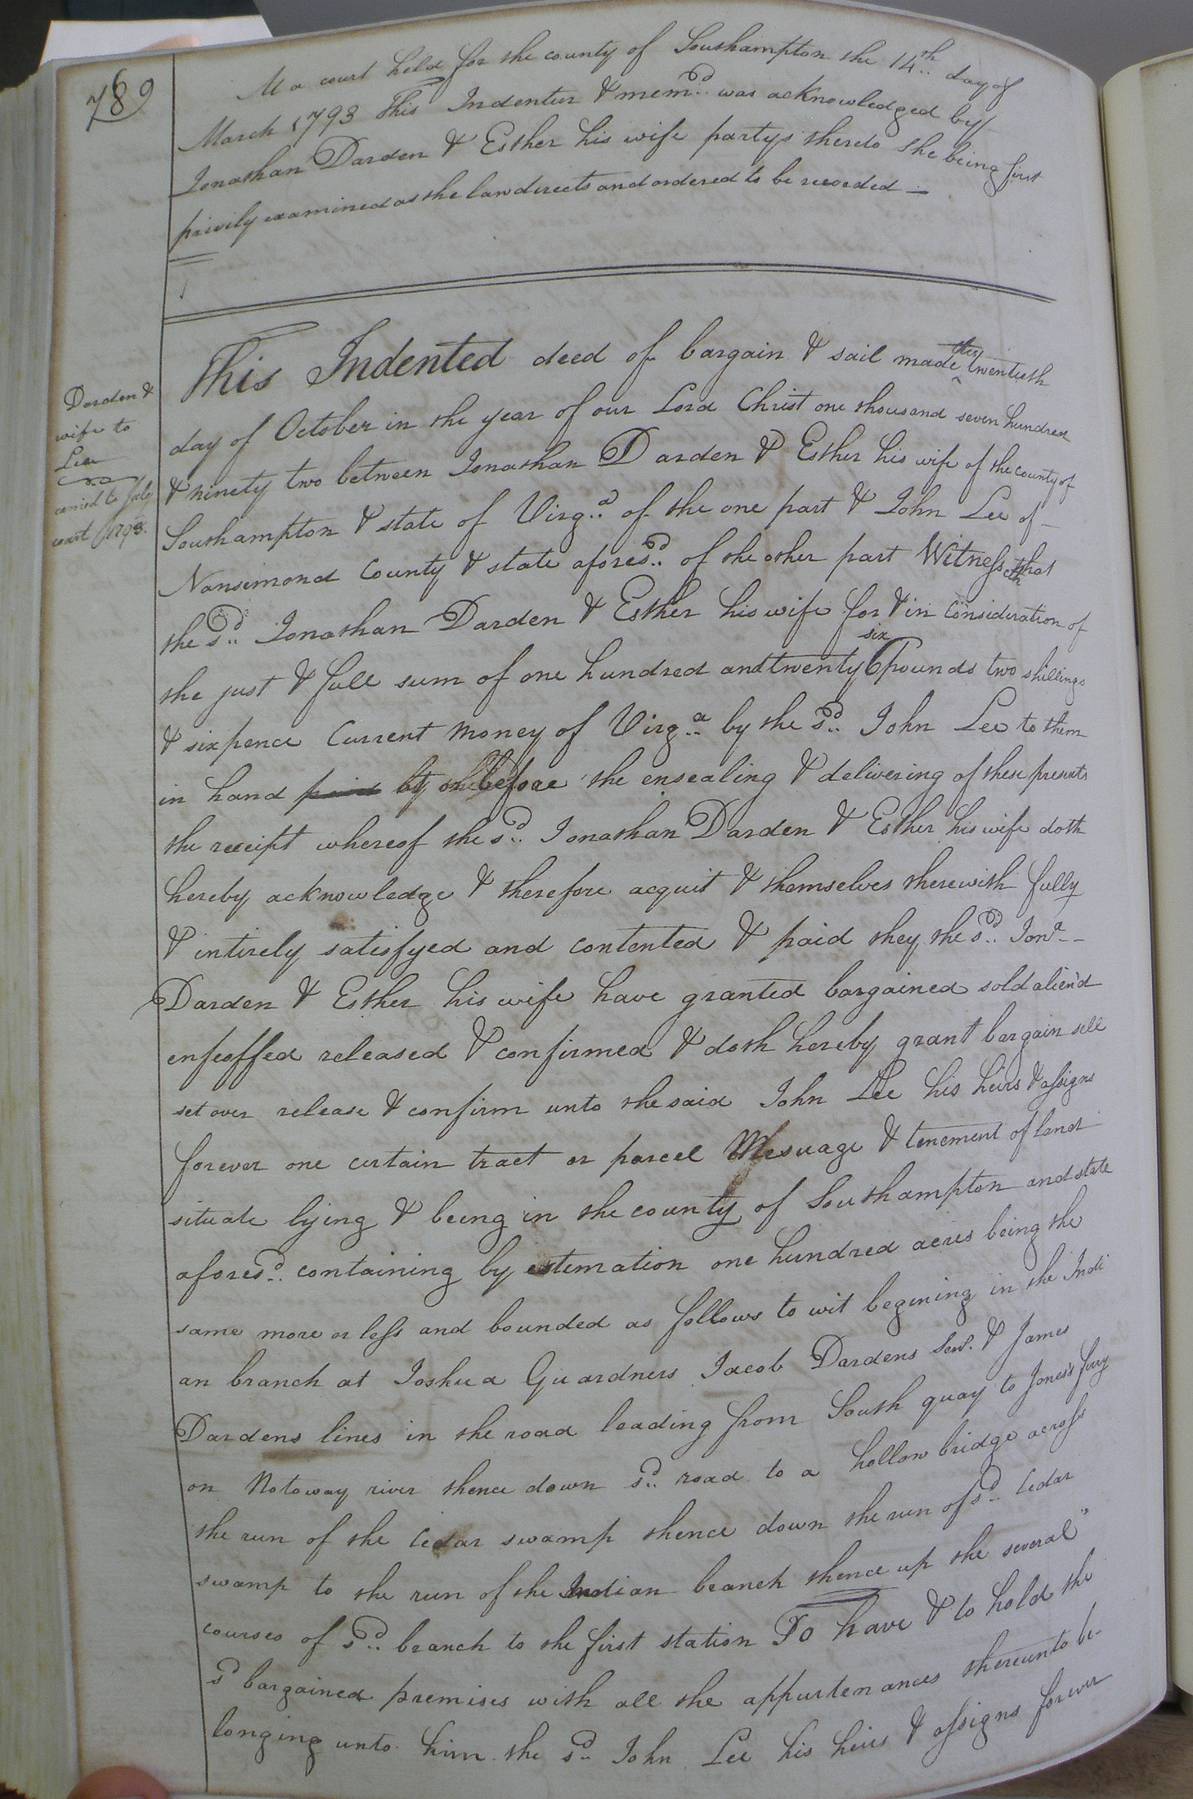 789
At a court held for the county of Southampton the 14th day of
March 1793 This Indenture & memd. was acknowledged by
Jonathan Darden & Esther his wife partys thereto She being first
privily examined as the law directs and ordered to be recorded —
Darden &
wife to
Lee
carried to July
court 1793.
This Indented deed of bargain & sail made the twentieth
day of October in the year of our Lord Christ one thousand seven hundred
& ninety two between Jonathan Darden & Esther his wife of the county of
Southampton & state of Virga. of the one part & John Lee of —
Nansimond County & state aforesd. of the other part Witnesseth that
the sd. Jonathan Darden & Esther his wife for & in consideration of
the just & full sum of one hundred and twenty six pounds two shillings
& six pence Current money of Virga. by the sd. John Lee to them
in hand paid before the ensealing & delivering of these presents
the receipt whereof the sd. Jonathan Darden & Esther his wife doth
hereby acknowledge & therefore acquit & themselves therewith fully
& intirely satisfyed and contented & paid they the sd. Jona. --
Darden & Esther his wife have granted bargained sold alien'd
enfeoffed released & confirmed & doth hereby grant bargain sell
set over release & confirm unto the said John Lee his heirs & assigns
forever one certain tract or parcel Mesuage & tenement of land
situate lying & being in the county of Southampton and state
aforesd. containing by estemation one hundred acres being the
same more or less and bounded as follows to wit begining in the Indi
an branch at Joshua Guardners Jacob Dardens Senr. & James
Dardens lines in the road leading from South quay to Jones's ferry
on Notoway river thence down sd. road to a hollow bridge across
the run of the Cedar swamp thence down the run of sd. Cedar
swamp to the run of the Indian branch thence up the several
courses of sd. branch to the first station To have & to hold the
sd bargained premises with all the appurtenances thereunto be-
longing unto him the sd. John Lee his heirs & assigns forever